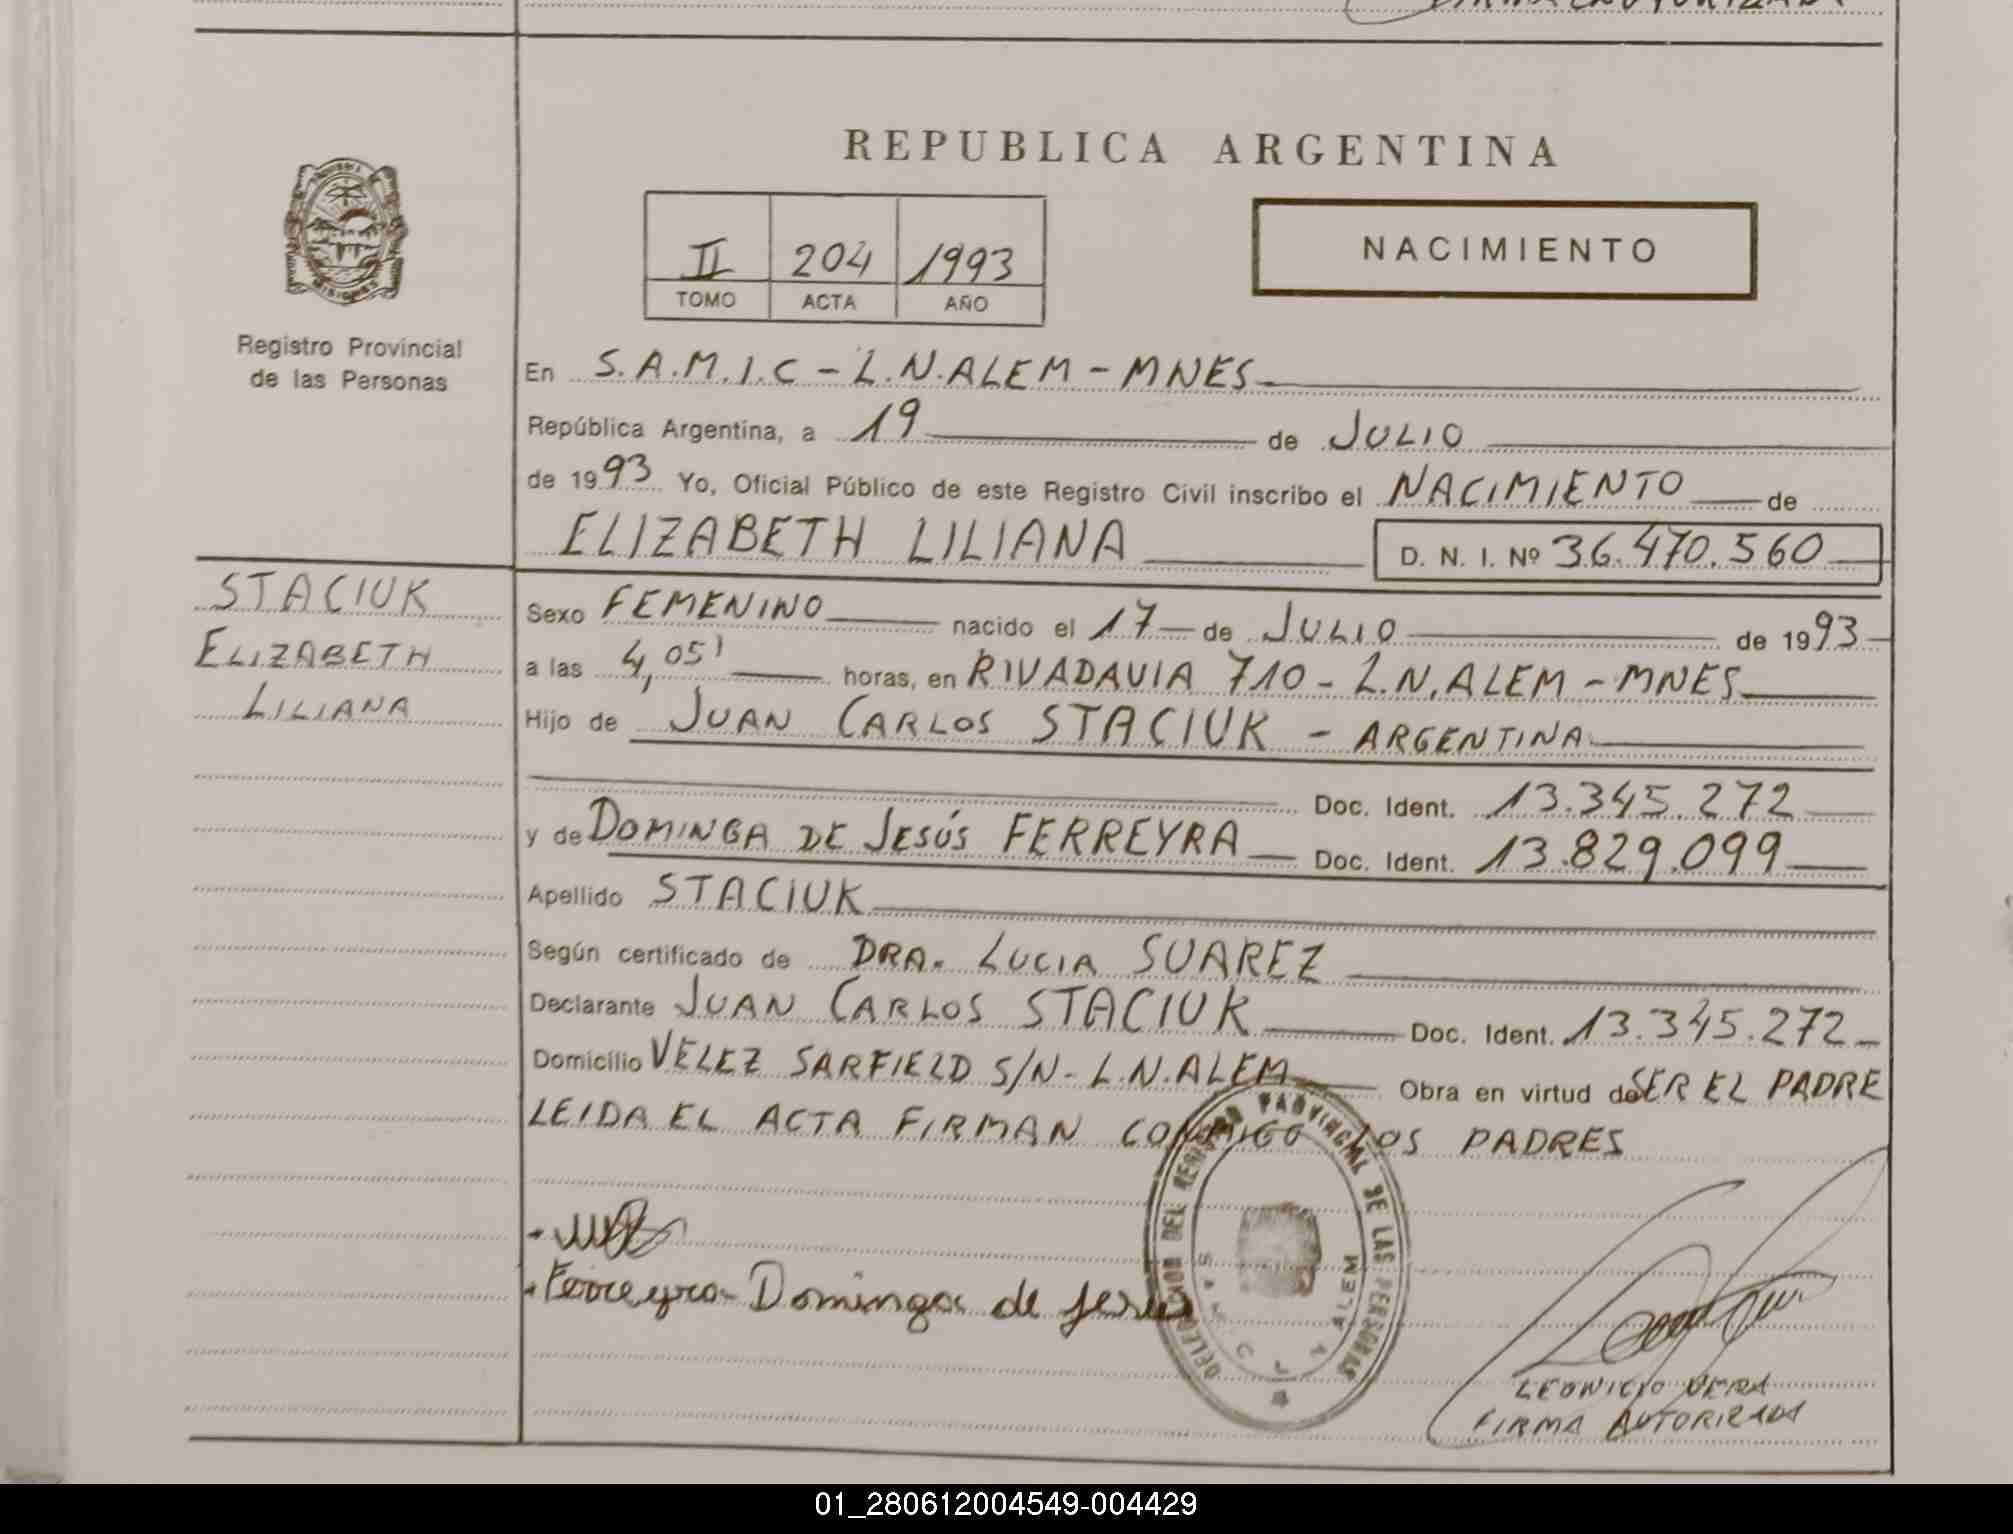 FIRMA AUTORIZADA
REPUBLICA ARGENTINA
II 204 1993
TOMO ACTA AÑO
NACIMIENTO
MISIONES
Registro Provincial
de las Personas
En S.A.M.I.C - L.N.ALEM - MNES
República Argentina, a 19 de JULIO
de 1993 Yo, Oficial Público de este Registro Civil inscribo el NACIMIENTO de
ELIZABETH LILIANA D. N. I. Nº 36.470.560
STACIUK
ELIZABETH
LILIANA
Sexo FEMENINO nacido el 17 de JULIO de 1993
a las 4,05' horas, en RIVADAVIA 710 - L.N.ALEM - MNES
Hijo de JUAN CARLOS STACIUK - ARGENTINA
Doc. Ident. 13.345.272
y de DOMINGA DE JESÚS FERREYRA Doc. Ident. 13.829.099
Apellido STACIUK
Según certificado de DRA. LUCIA SUAREZ
Declarante JUAN CARLOS STACIUK Doc. Ident. 13.345.272
Domicilio VELEZ SARFIELD S/N - L.N.ALEM Obra en virtud de SER EL PADRE
LEIDA EL ACTA FIRMAN CONMIGO LOS PADRES
Ferreyra Dominga de Jesus
DELEGACION DEL REGISTRO PROVINCIAL DE LAS PERSONAS
ALEM
LEONICIO VERA
FIRMA AUTORIZADA
01_280612004549-004429